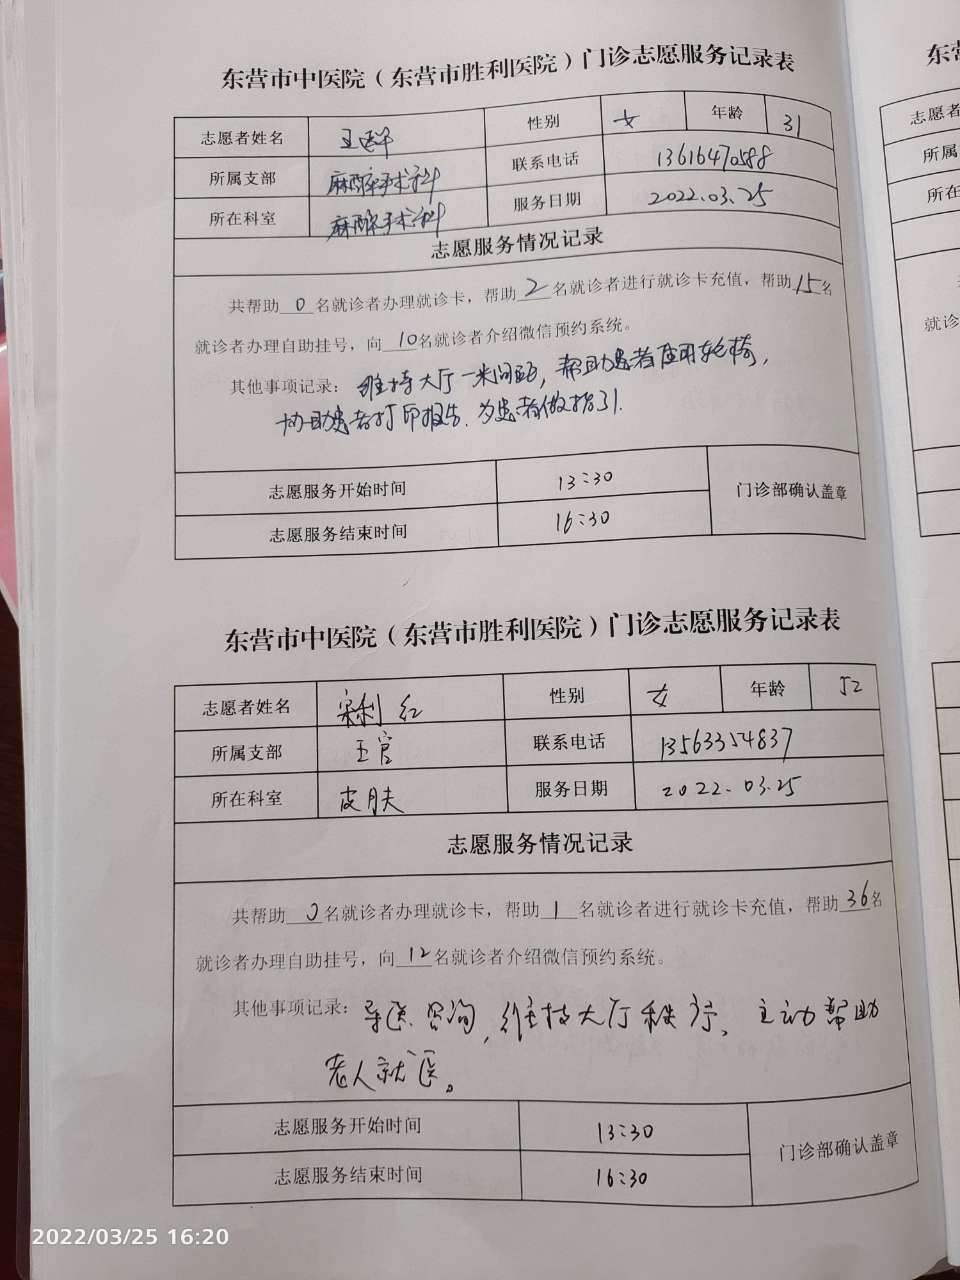 东营市中医院（东营市胜利医院）门诊志愿服务记录表
志愿者姓名 性别 女 年龄 31
所属支部 麻醉手术科 联系电话 13616470588
所在科室 麻醉手术科 服务日期 2022.03.25
志愿服务情况记录
共帮助0名就诊者办理就诊卡，帮助2名就诊者进行就诊卡充值，帮助15名
就诊者办理自助挂号，向10名就诊者介绍微信预约系统。
其他事项记录：维持大厅一米间距，帮助患者使用轮椅，
协助患者打印报告.为患者做指引.
志愿服务开始时间 13:30 门诊部确认盖章
志愿服务结束时间 16:30
东营市中医院（东营市胜利医院）门诊志愿服务记录表
志愿者姓名 宋利红 性别 女 年龄 52
所属支部 王官 联系电话 13563354837
所在科室 皮肤 服务日期 2022.03.25
志愿服务情况记录
共帮助0名就诊者办理就诊卡，帮助1名就诊者进行就诊卡充值，帮助36名
就诊者办理自助挂号，向12名就诊者介绍微信预约系统。
其他事项记录：导医咨询，维持大厅秩序、主动帮助
老人就医。
志愿服务开始时间 13:30 门诊部确认盖章
志愿服务结束时间 16:30
东营
志愿者
所属
所在
就诊
2022/03/25 16:20